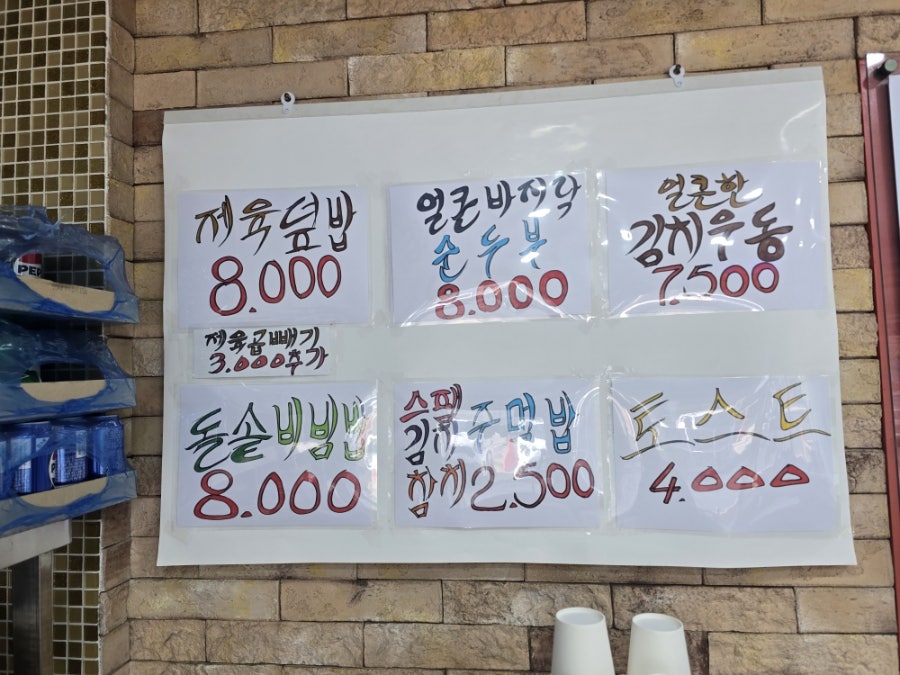 제육덮밥
8.000
제육곱빼기
3.000추가
얼큰바지락
순두부
8.000
얼큰한
김치우동
7.500
돌솥비빔밥
8.000
스팸
김치 주먹밥
참치 2.500
토스트
4.000
PEPSI